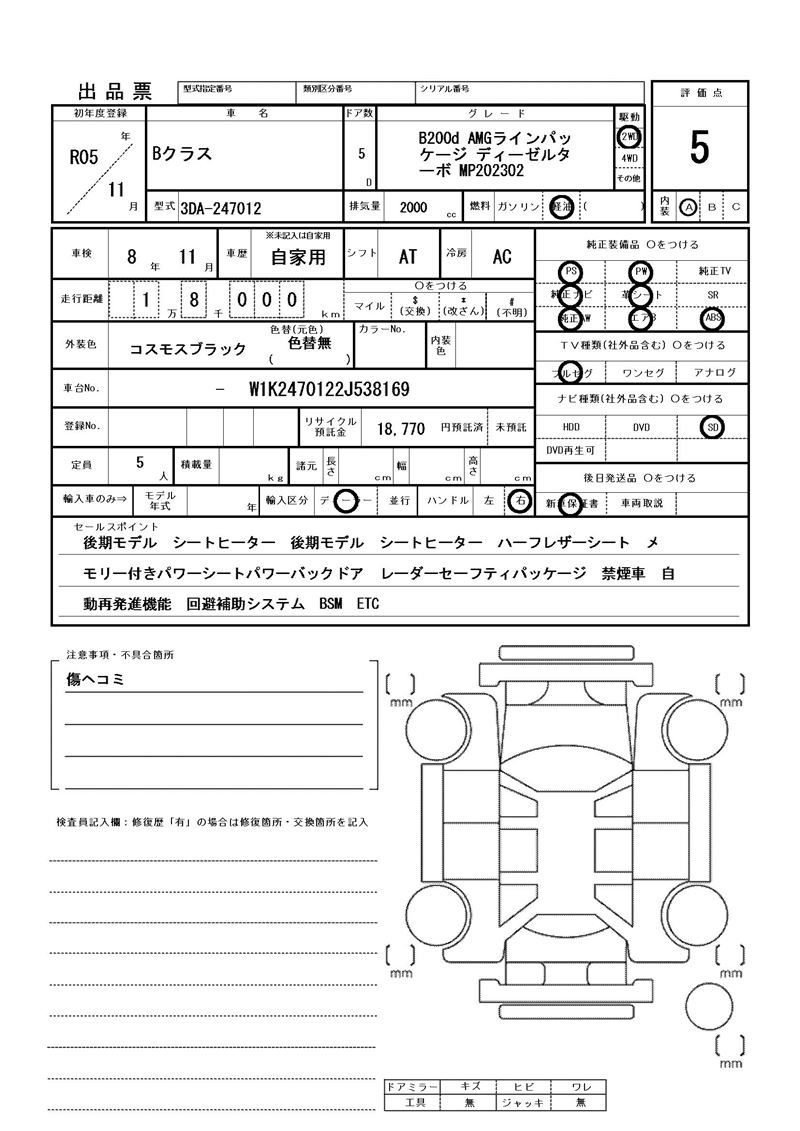 出品票 型式指定番号 類別区分番号 シリアル番号
評価点
5
内装 A B C
初年度登録 車名 ドア数 グレード 駆動
R05 年 11 月
Bクラス
5 D
B200d AMGラインパッ
ケージ ディーゼルタ
ーボ MP202302
2WD
4WD
その他
型式 3DA-247012 排気量 2000 cc 燃料 ガソリン 軽油 ( )
車検 8 年 11 月 車歴 ※未記入は自家用 自家用 シフト AT 冷房 AC
走行距離 1 万 8 千 0 0 0 km
○をつける
マイル $(交換) *(改ざん) #(不明)
外装色 コスモスブラック 色替(元色) 色替無 ( ) カラーNo. 内装色
車台No. − W1K2470122J538169
登録No. リサイクル預託金 18,770 円預託済 未預託
定員 5 人 積載量 kg 諸元 長さ cm 幅 cm 高さ cm
輸入車のみ⇒ モデル年式 年 輸入区分 ディーラー 並行 ハンドル 左 右
純正装備品 ○をつける
PS PW 純正TV
純正ナビ 革シート SR
純正AW エアB ABS
TV種類(社外品含む) ○をつける
フルセグ ワンセグ アナログ
ナビ種類(社外品含む) ○をつける
HDD DVD SD
DVD再生可
後日発送品 ○をつける
新車保証書 車両取説
セールスポイント
後期モデル シートヒーター 後期モデル シートヒーター ハーフレザーシート メ
モリー付きパワーシートパワーバックドア レーダーセーフティパッケージ 禁煙車 自
動再発進機能 回避補助システム BSM ETC
注意事項・不具合箇所
傷ヘコミ
検査員記入欄：修復歴「有」の場合は修復箇所・交換箇所を記入
[ ] mm
[ ] mm
[ ] mm
[ ] mm
[ ] mm
ドアミラー キズ ヒビ ワレ
工具 無 ジャッキ 無